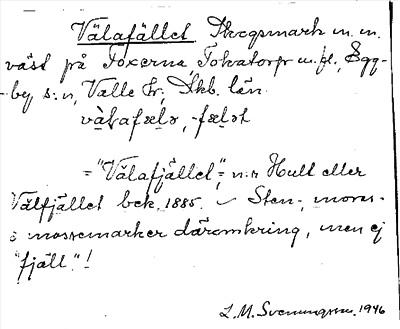 Välafället Skogsmark m. m.
väst på Foxerna Tokatorp m. fl., Egg-
by s:n, Valle hr., Skb. län.
vä̀lafælə, -fælət
="Välafjället", n:r Hult eller
Välfjället bek. 1885. Sten-, moras-
o mossemarker däromkring, men ej
"fjäll"!
L. M. Svenungsson, 1946